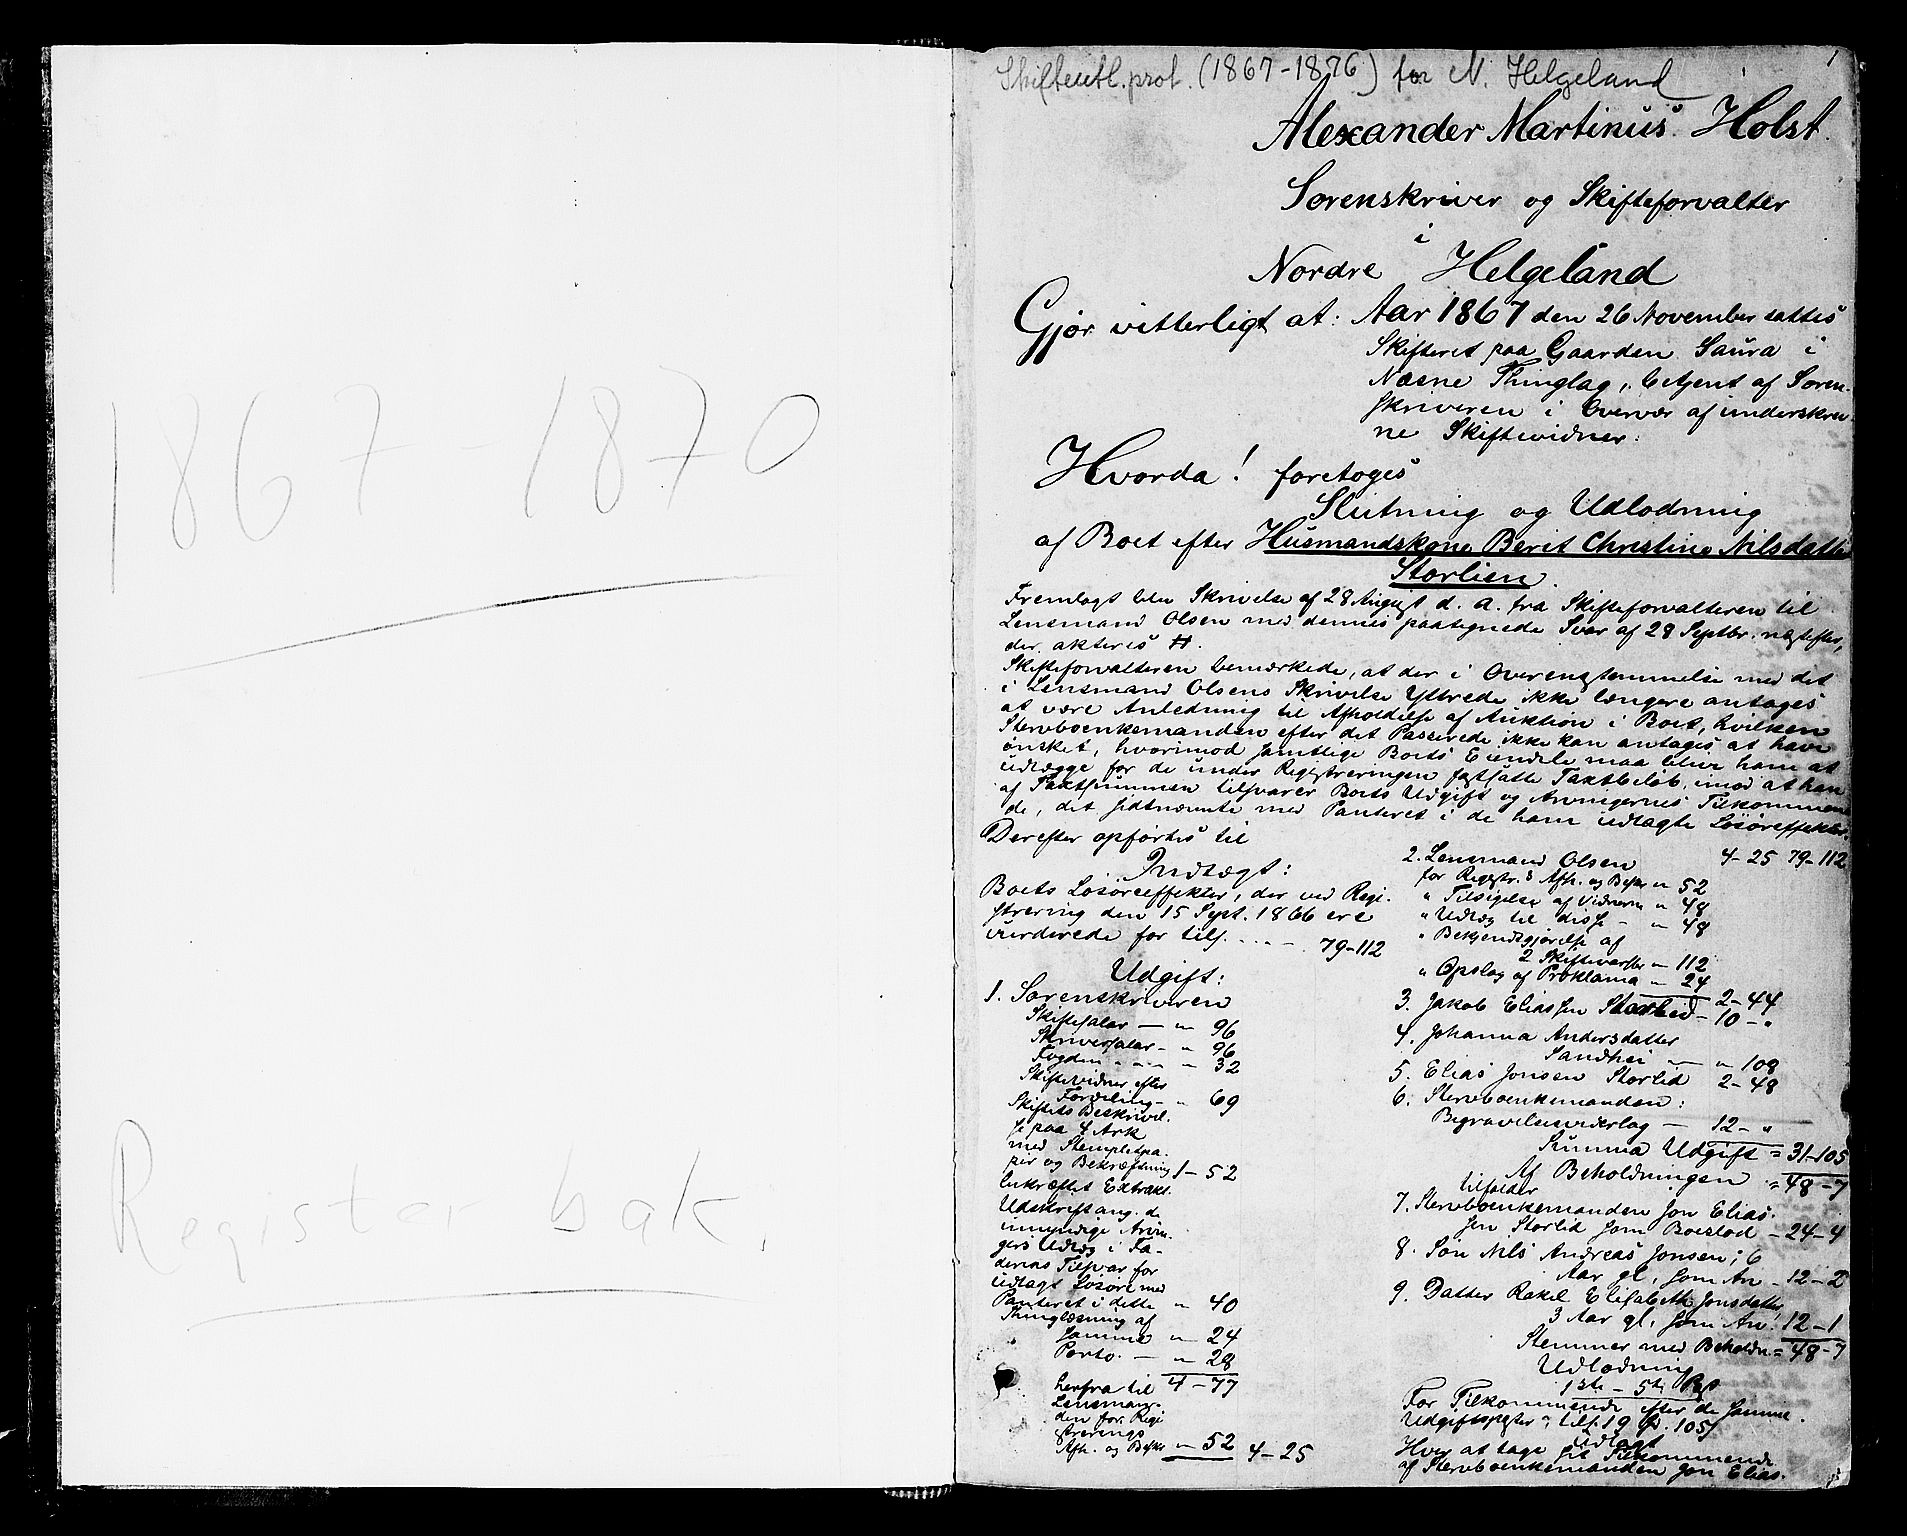 1867-1870
Register bak.
1
Skifteutl.prot. (1867-1876) for N. Helgeland
Alexander Martinus Holst.
Sorenskriver og Skifteforvalter
i
Nordre Helgeland
Gjør vitterligt at: Aar 1867 den 26 November sattes
Skifteret paa Gaarden Saura i
Næsne Thinglag, betjent af Soren-
skriveren i Overvær af underskrev-
ne Skiftevidner:
Hvorda! foretoges
Slutning og Udlodning
af Boet efter Husmandskone Berit Christine Nilsdatter
Storlien.
Fremlagt blev Skrivelse af 28 August d. A. fra Skifteforvalteren til
Lensmand Olsen med dennes paategnede Svar af 28 Septbr. næstefter,
der akteres #.
Skifteforvalteren bemærkede, at der i Overensstemmelse med det
i Lensmand Olsens Skrivelse Yttrede ikke længere antages
at være Anledning til Afholdelse af Auktion i Boet, hvilken
Stervboenkemanden efter det Passerede ikke kan antages at have
ønsket, hvorimod samtlige Boets Eiendele maa blive ham at
udlægge for de under Registreringen fastsatte Taxtbeløb, imod at han
af Taxtsummen tilsvarer Boets Udgift og Arvingernes Tilkommen
de, det sidstnævnte med Panteret i de ham udlagte Løsøreffekter.
Derefter opførtes til
Indtægt:
Boets Løsøreeffekter, der ved Regi-
strering den 15 Sept. 1866 ere
vurderede for tils. . . . . 79-112
Udgift:
1. Sorenskriveren
Skiftesalar — " 96
Skriversalar — " 96
Fogden " - " - " 32
Skiftevidner efter
Fordeling — " 69
Skiftets Beskrivel-
se paa 4 Ark
med Stempletpa-
pir og Bekræftning 1-52
bekræftet Extrakt.
Udskrift ang. de
umyndige Arvin-
gers Udlæg i Fa-
derens Tilsvar for
udlagt Løsøre med
Panteret i dette " 40
Thinglæsning af
samme " 24
Porto. — " 28
herfra til 4-77
Lensman-
den for Regi
strerings
Afh. og Beskr " 52 4-25
2. Lensmand Olsen 4-25 79-112
for Registr.s Afh. og Beskr " 52
" Tilsigelse af Vidnerne " 48
" Udlæg til disse — " 48
" Bekjendtgjørelse af
2 Skiftevarsler " 112
" Opslag af Proklama " 24
2-44
3. Jakob Eliassen Storlid — 10-"
4. Johanna Andersdatter
Sandhei — " 108
5. Elias Jonsen Storlid 2-48
6. Stervboenkemanden:
Begravelsesvederlag — 12-"
Summa Udgift = 31-105
Af Beholdningen = 48-7
tilfalder
7. Stervboenkemanden Jon Elias-
sen Storlid som Boeslod — 24-4
8. Søn Nils Andreas Jonsen, 6
Aar gl, som Arv — 12-2
9. Datter Rakel Elisabeth Jonsdatter
3 Aar gl, som Arv 12-1
Stemmer med Beholdn. = 48-7
Udlodning
1ste - 5te Post
For Tilkommende efter de samme
Udgiftsposter, tils. 19 Sp. 105
Udlagt
Hver at tage sit Tilkommende
af Stervboenkemanden Jon Elias-